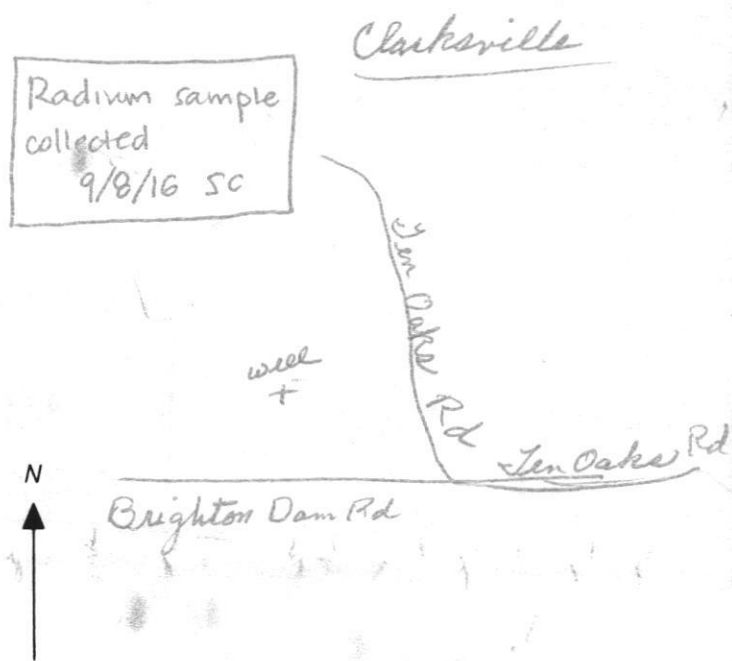 Clarksville
Radium sample
collected
9/8/16 SC
Ten Oaks Rd
well
Ten Oaks Rd
N
Brighton Dam Rd